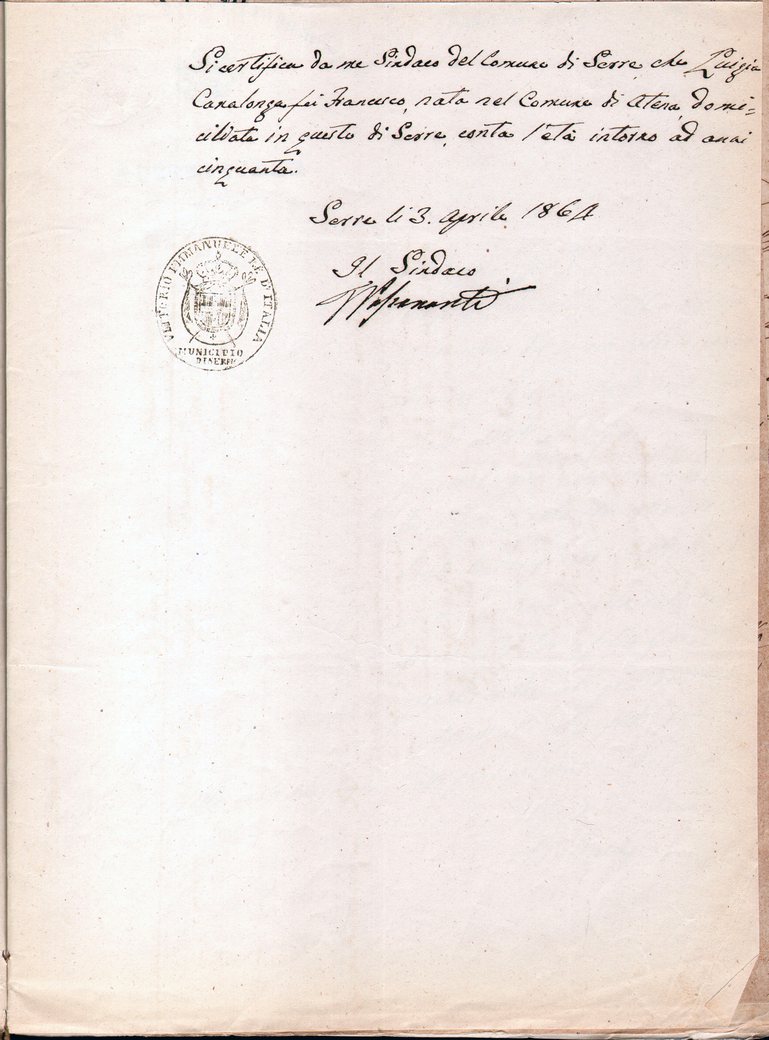 Si certifica da me Sindaco del Comune di Serre, che Luigia
Canalonga fu Francesco, nata nel Comune di Atena, domi=
ciliata in questo di Serre, conta l'età intorno ad anni
cinquanta.
Serre li 3. aprile 1864
Il Sindaco
VITTORIO EMMANUELE RE D'ITALIA
MUNICIPIO
DI SERRE